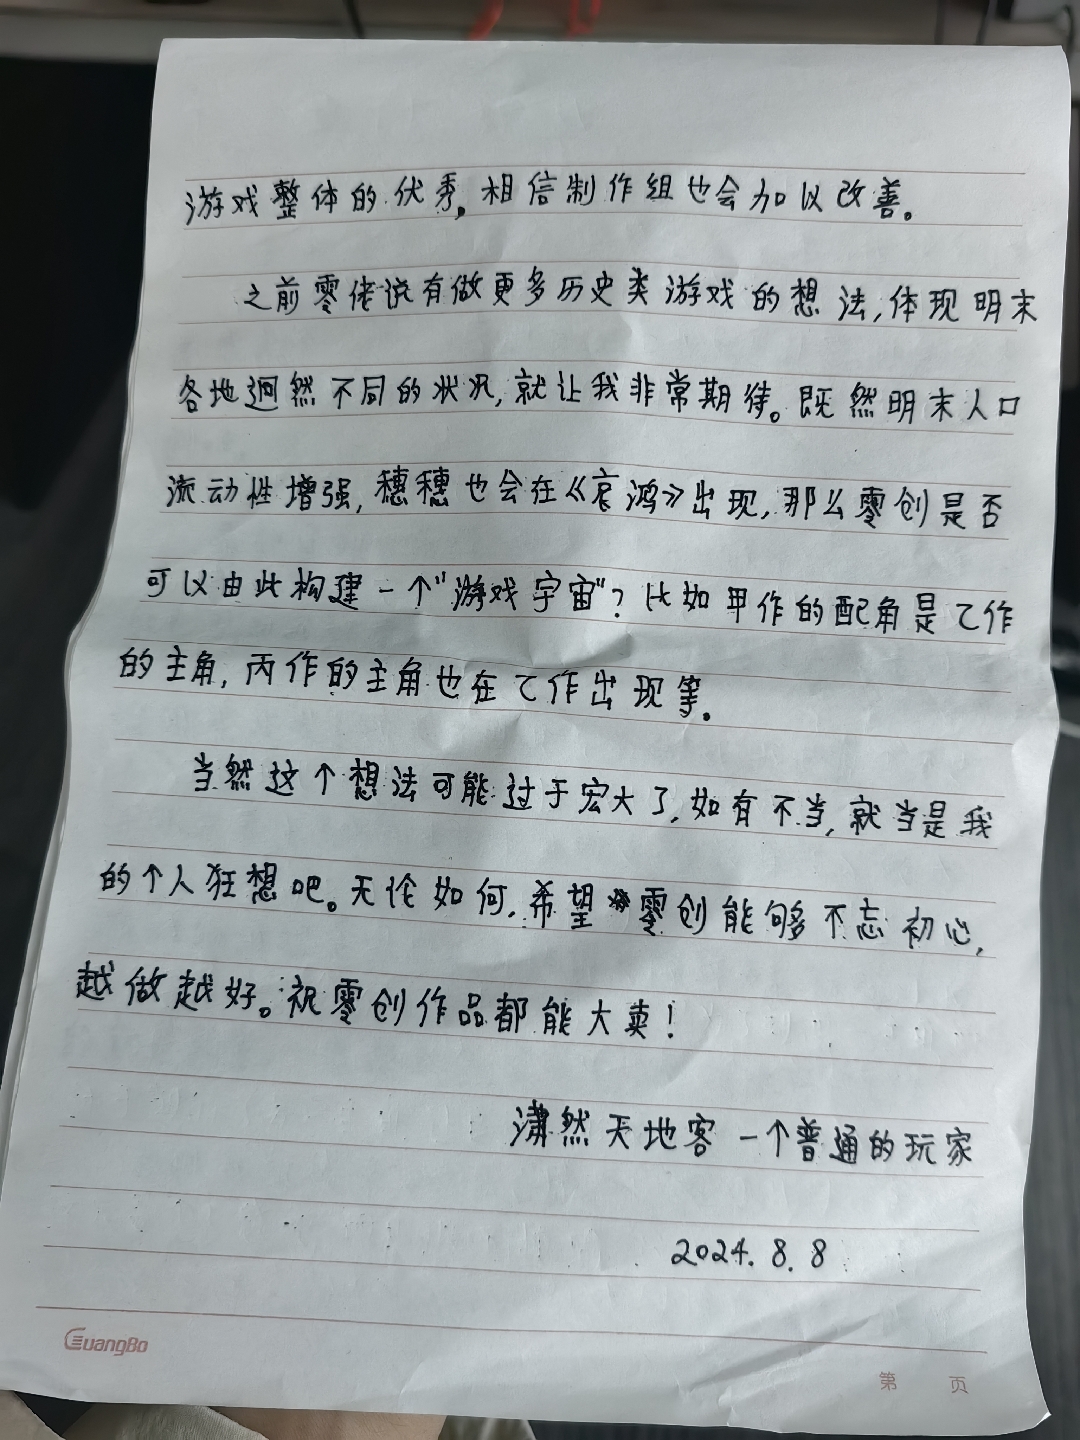 游戏整体的优秀,相信制作组也会加以改善。
之前零佬说有做更多历史类游戏的想法,体现明末
各地迥然不同的状况,就让我非常期待。既然明末人口
流动性增强,穗穗也会在《哀鸿》出现,那么零创是否
可以由此构建一个"游戏宇宙"?比如甲作的配角是乙作
的主角,丙作的主角也在乙作出现等。
当然这个想法可能过于宏大了,如有不当,就当是我
的个人狂想吧。无论如何,希望零创能够不忘初心,
越做越好。祝零创作品都能大卖!
潇然天地客 一个普通的玩家
2024.8.8
GuangBo
第 页